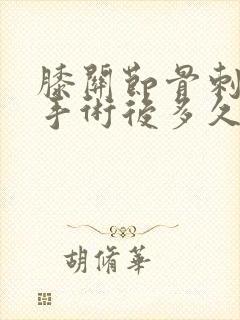 膝關節骨刺
手術後多久
胡脩華